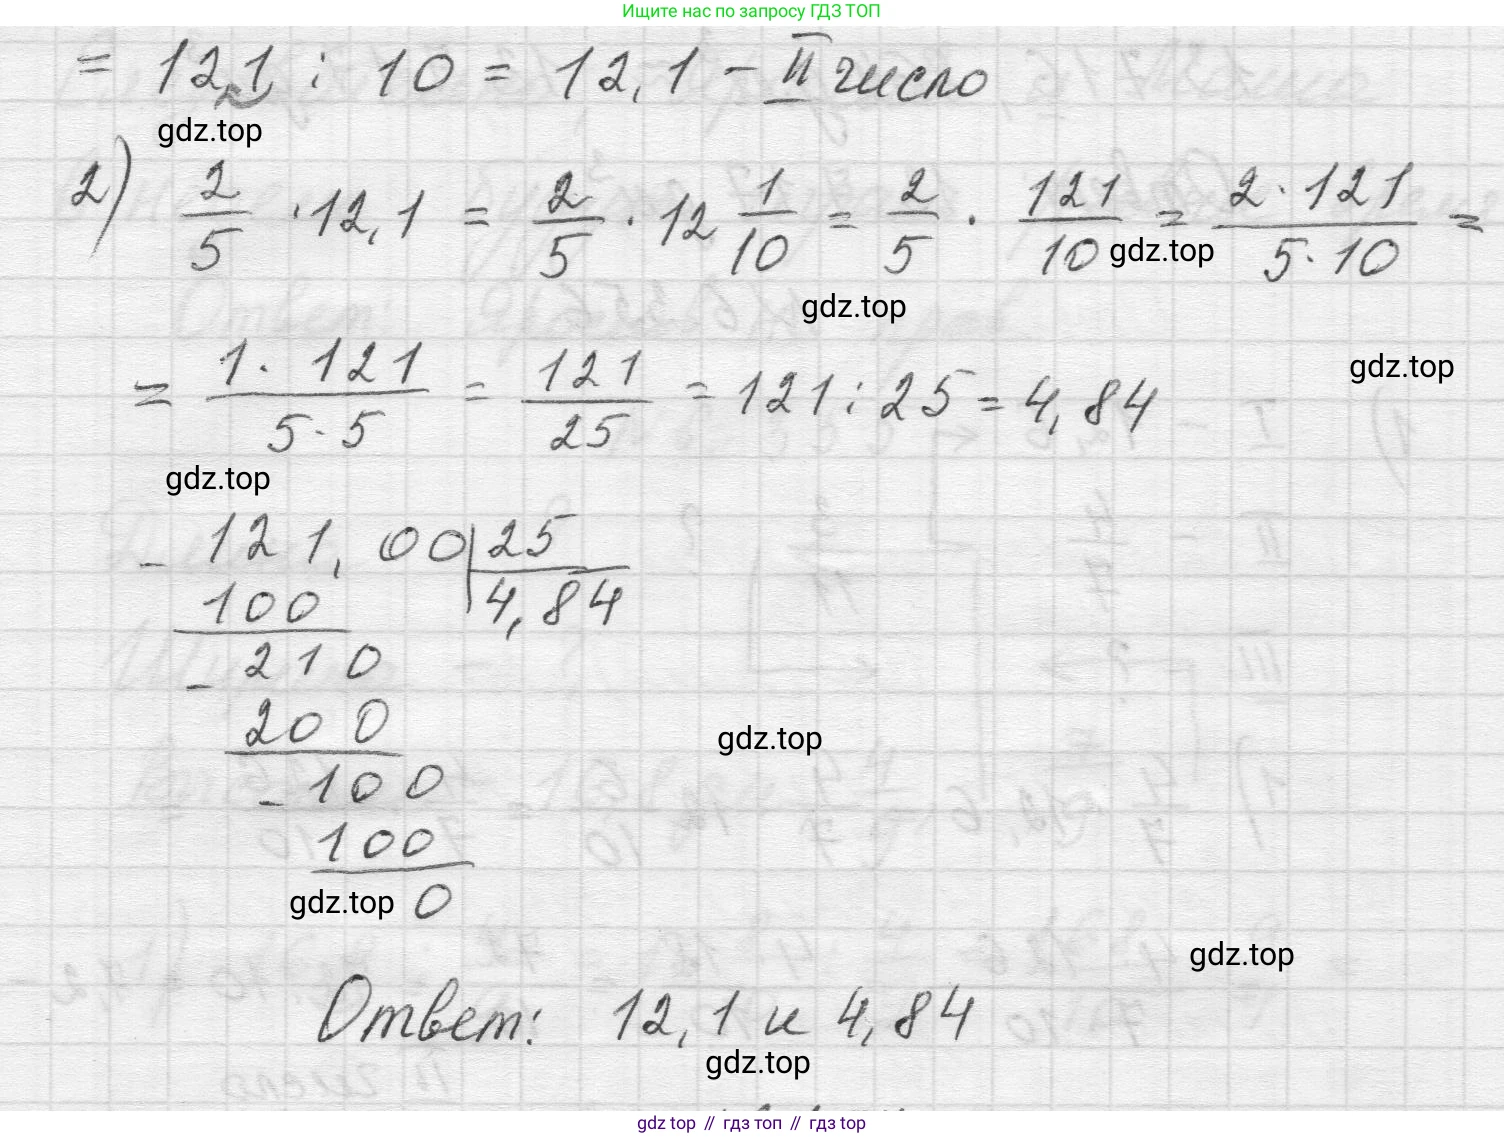 Ищите нас по запросу ГДЗ ТОП
= 12,1 : 10 = 12,1 - II число
gdz.top
2) 2/5 · 12,1 = 2/5 · 12 1/10 = 2/5 · 121/10 = 2 · 121 / 5 · 10 =
gdz.top
gdz.top
= 1 · 121 / 5 · 5 = 121/25 = 121 : 25 = 4,84
gdz.top
gdz.top
- 121,00 | 25
100 | 4,84
- 210
200
gdz.top
- 100
100
gdz.top 0
gdz.top
Ответ: 12,1 и 4,84
gdz.top
gdz top // гдз топ // гдз top